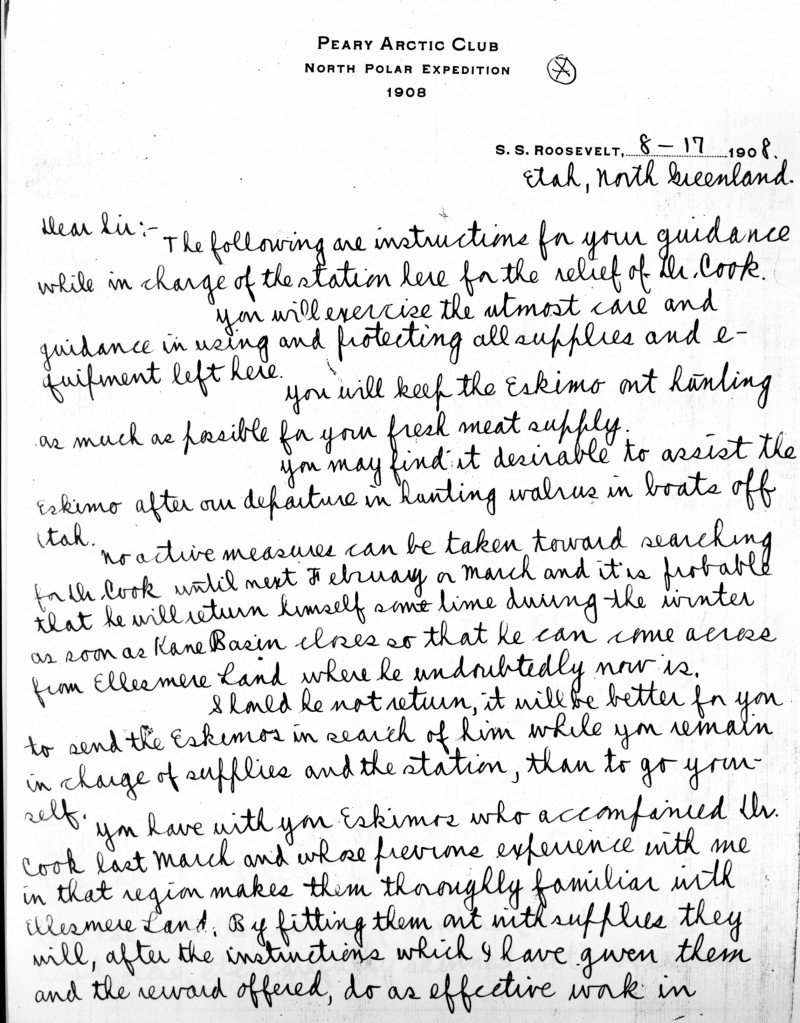 PEARY ARCTIC CLUB
NORTH POLAR EXPEDITION
1908
S. S. ROOSEVELT, 8 – 17 1908.
Etah, North Greenland.
Dear Sir:- The following are instructions for your guidance
while in charge of the station here for the relief of Dr. Cook.
You will exercise the utmost care and
guidance in using and protecting all supplies and e-
quipment left here.
You will keep the Eskimo out hunting
as much as possible for your fresh meat supply.
You may find it desirable to assist the
Eskimo after our departure in hunting walrus in boats off
Etah.
No active measures can be taken toward searching
for Dr. Cook until next February or March and it is probable
that he will return himself some time during the winter
as soon as Kane Basin closes so that he can come across
from Ellesmere Land where he undoubtedly now is.
Should he not return, it will be better for you
to send the Eskimos in search of him while you remain
in charge of supplies and the station, than to go your-
self.
You have with you Eskimos who accompanied Dr.
Cook last March and whose previous experience with me
in that region makes them thoroughly familiar with
Ellesmere Land. By fitting them out with supplies they
will, after the instructions which I have given them
and the reward offered, do as effective work in